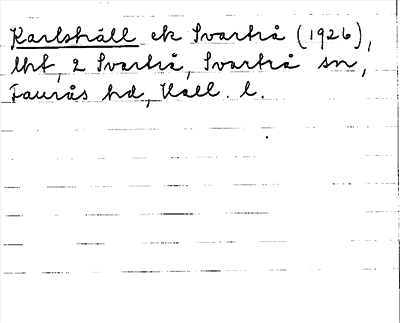 Karlshäll ek Svartrå (1926),
lht, 2 Svartrå, Svartrå sn,
Faurås hd, Hall. l.